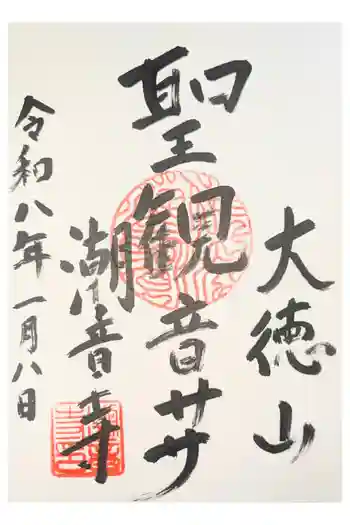 大徳山
聖観音菩薩
潮音寺
令和八年一月八日